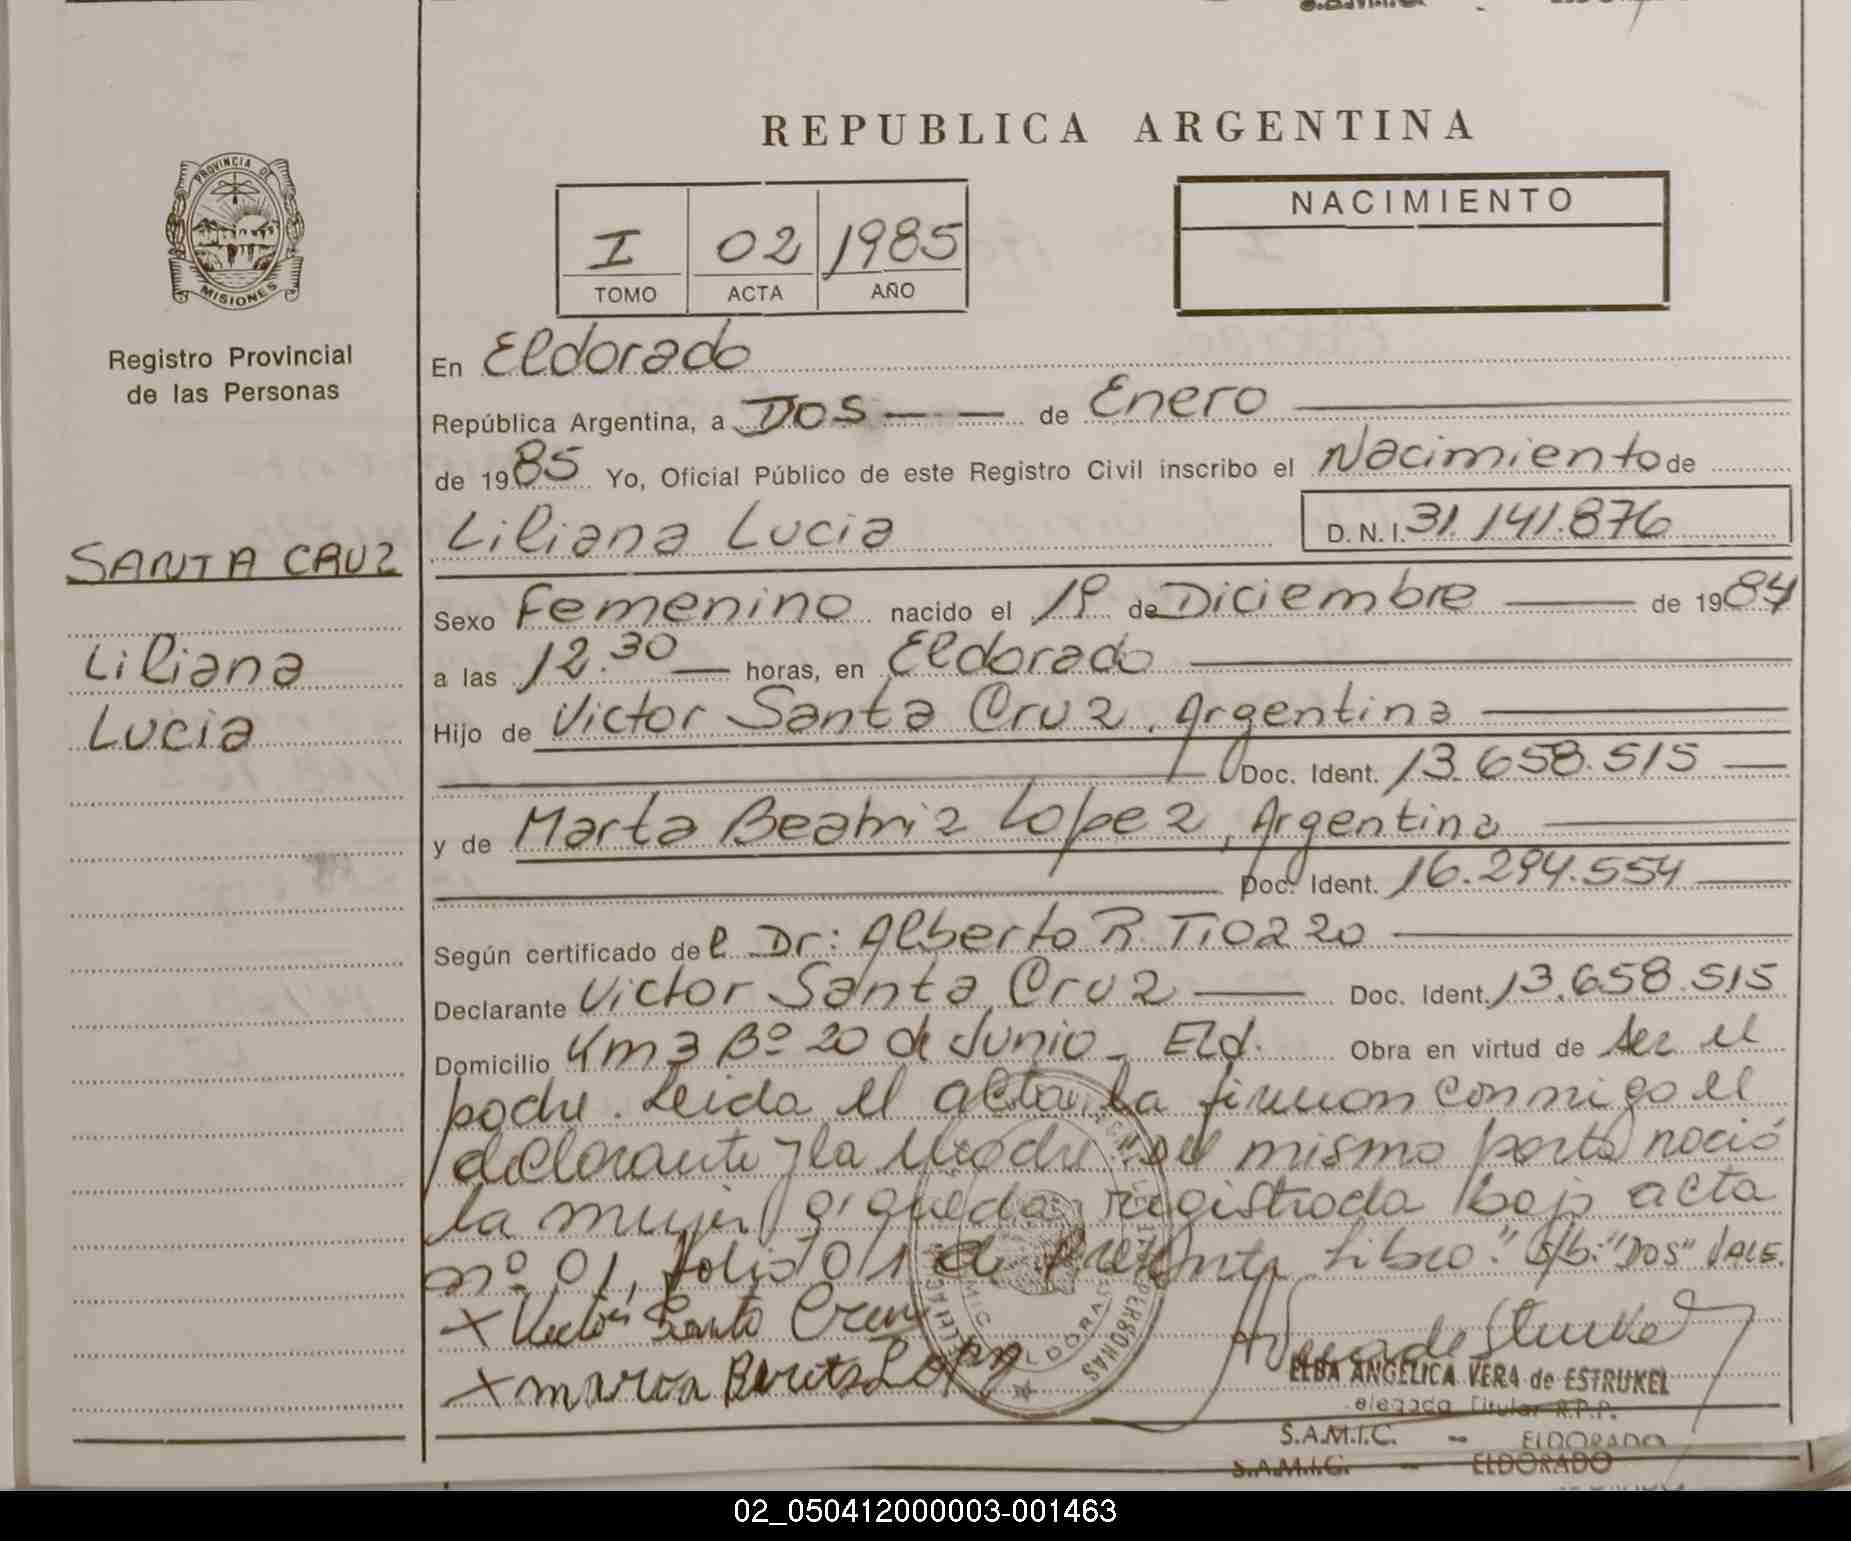 REPUBLICA ARGENTINA
PROVINCIA DE
MISIONES
Registro Provincial
de las Personas
I 02 1985
TOMO ACTA AÑO
NACIMIENTO
SANTA CRUZ
Liliana
Lucia
En Eldorado
República Argentina, a Dos de Enero
de 1985 Yo, Oficial Público de este Registro Civil inscribo el Nacimiento de
Liliana Lucia D.N.I. 31.141.876
Sexo Femenino nacido el 19 de Diciembre de 1984
a las 12.30 horas, en Eldorado
Hijo de Victor Santa Cruz, Argentina
Doc. Ident. 13.658.515
y de Marta Beatriz Lopez, Argentina
Doc. Ident. 16.294.554
Según certificado del Dr: Alberto R. Tiozzo
Declarante Victor Santa Cruz Doc. Ident. 13.658.515
Domicilio Km 3 Bº 20 de Junio - Eld. Obra en virtud de ser el
padre. Leida el acta, la firman conmigo el
declarante y la Madre. Del mismo parto nació
la mujer q' queda registrada bajo acta
nº 01, folio 01 de presente Libro." S/b: "DOS" VALE.
x Victor Santa Cruz
x marta Lopez
ELBA ANGELICA VERA de ESTRUKEL
elegada Titular R.P.P.
S.A.M.I.C. - ELDORADO
S.A.M.I.C. - ELDORADO
02_050412000003-001463